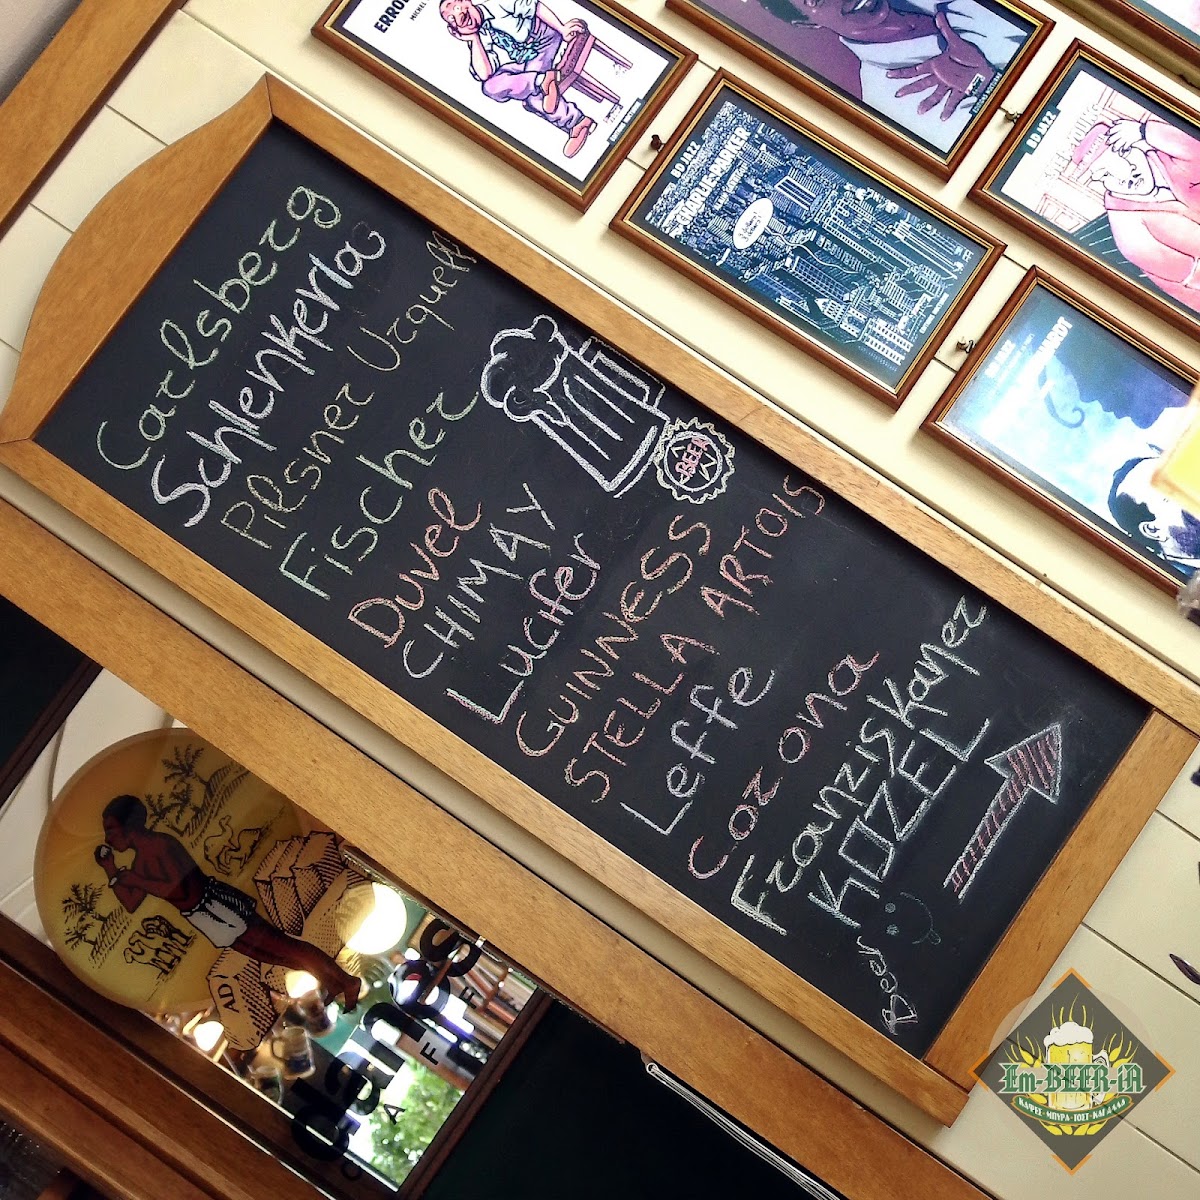 Carlsberg
Schlenkerla
Pilsner Urquell
Fischer
Duvel
CHIMAY
Lucifer
GUINNESS
STELLA ARTOIS
Leffe
Corona
Franziskaner
KOZEL
Beer
BEER
BD JAZZ
CHARLIE PARKER
BD JAZZ
danesi
CAFFÈ
AD
Em-BEER-iA
ΚΑΦΕΣ·ΜΠΥΡΑ·ΤΟΣΤ·ΚΑΙ ΑΛΛΑ